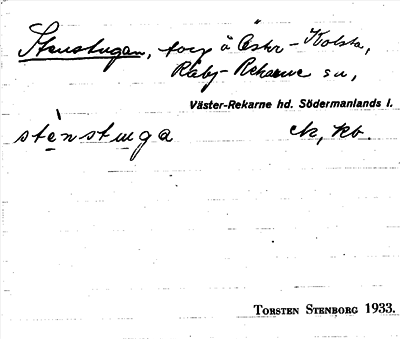 Stenstugan, torp å Östr-Kolsta,
Råby-Rekarne sn,
Väster-Rekarne hd. Södermanlands l.
stènstuga ek, kb.
TORSTEN STENBORG 1933.